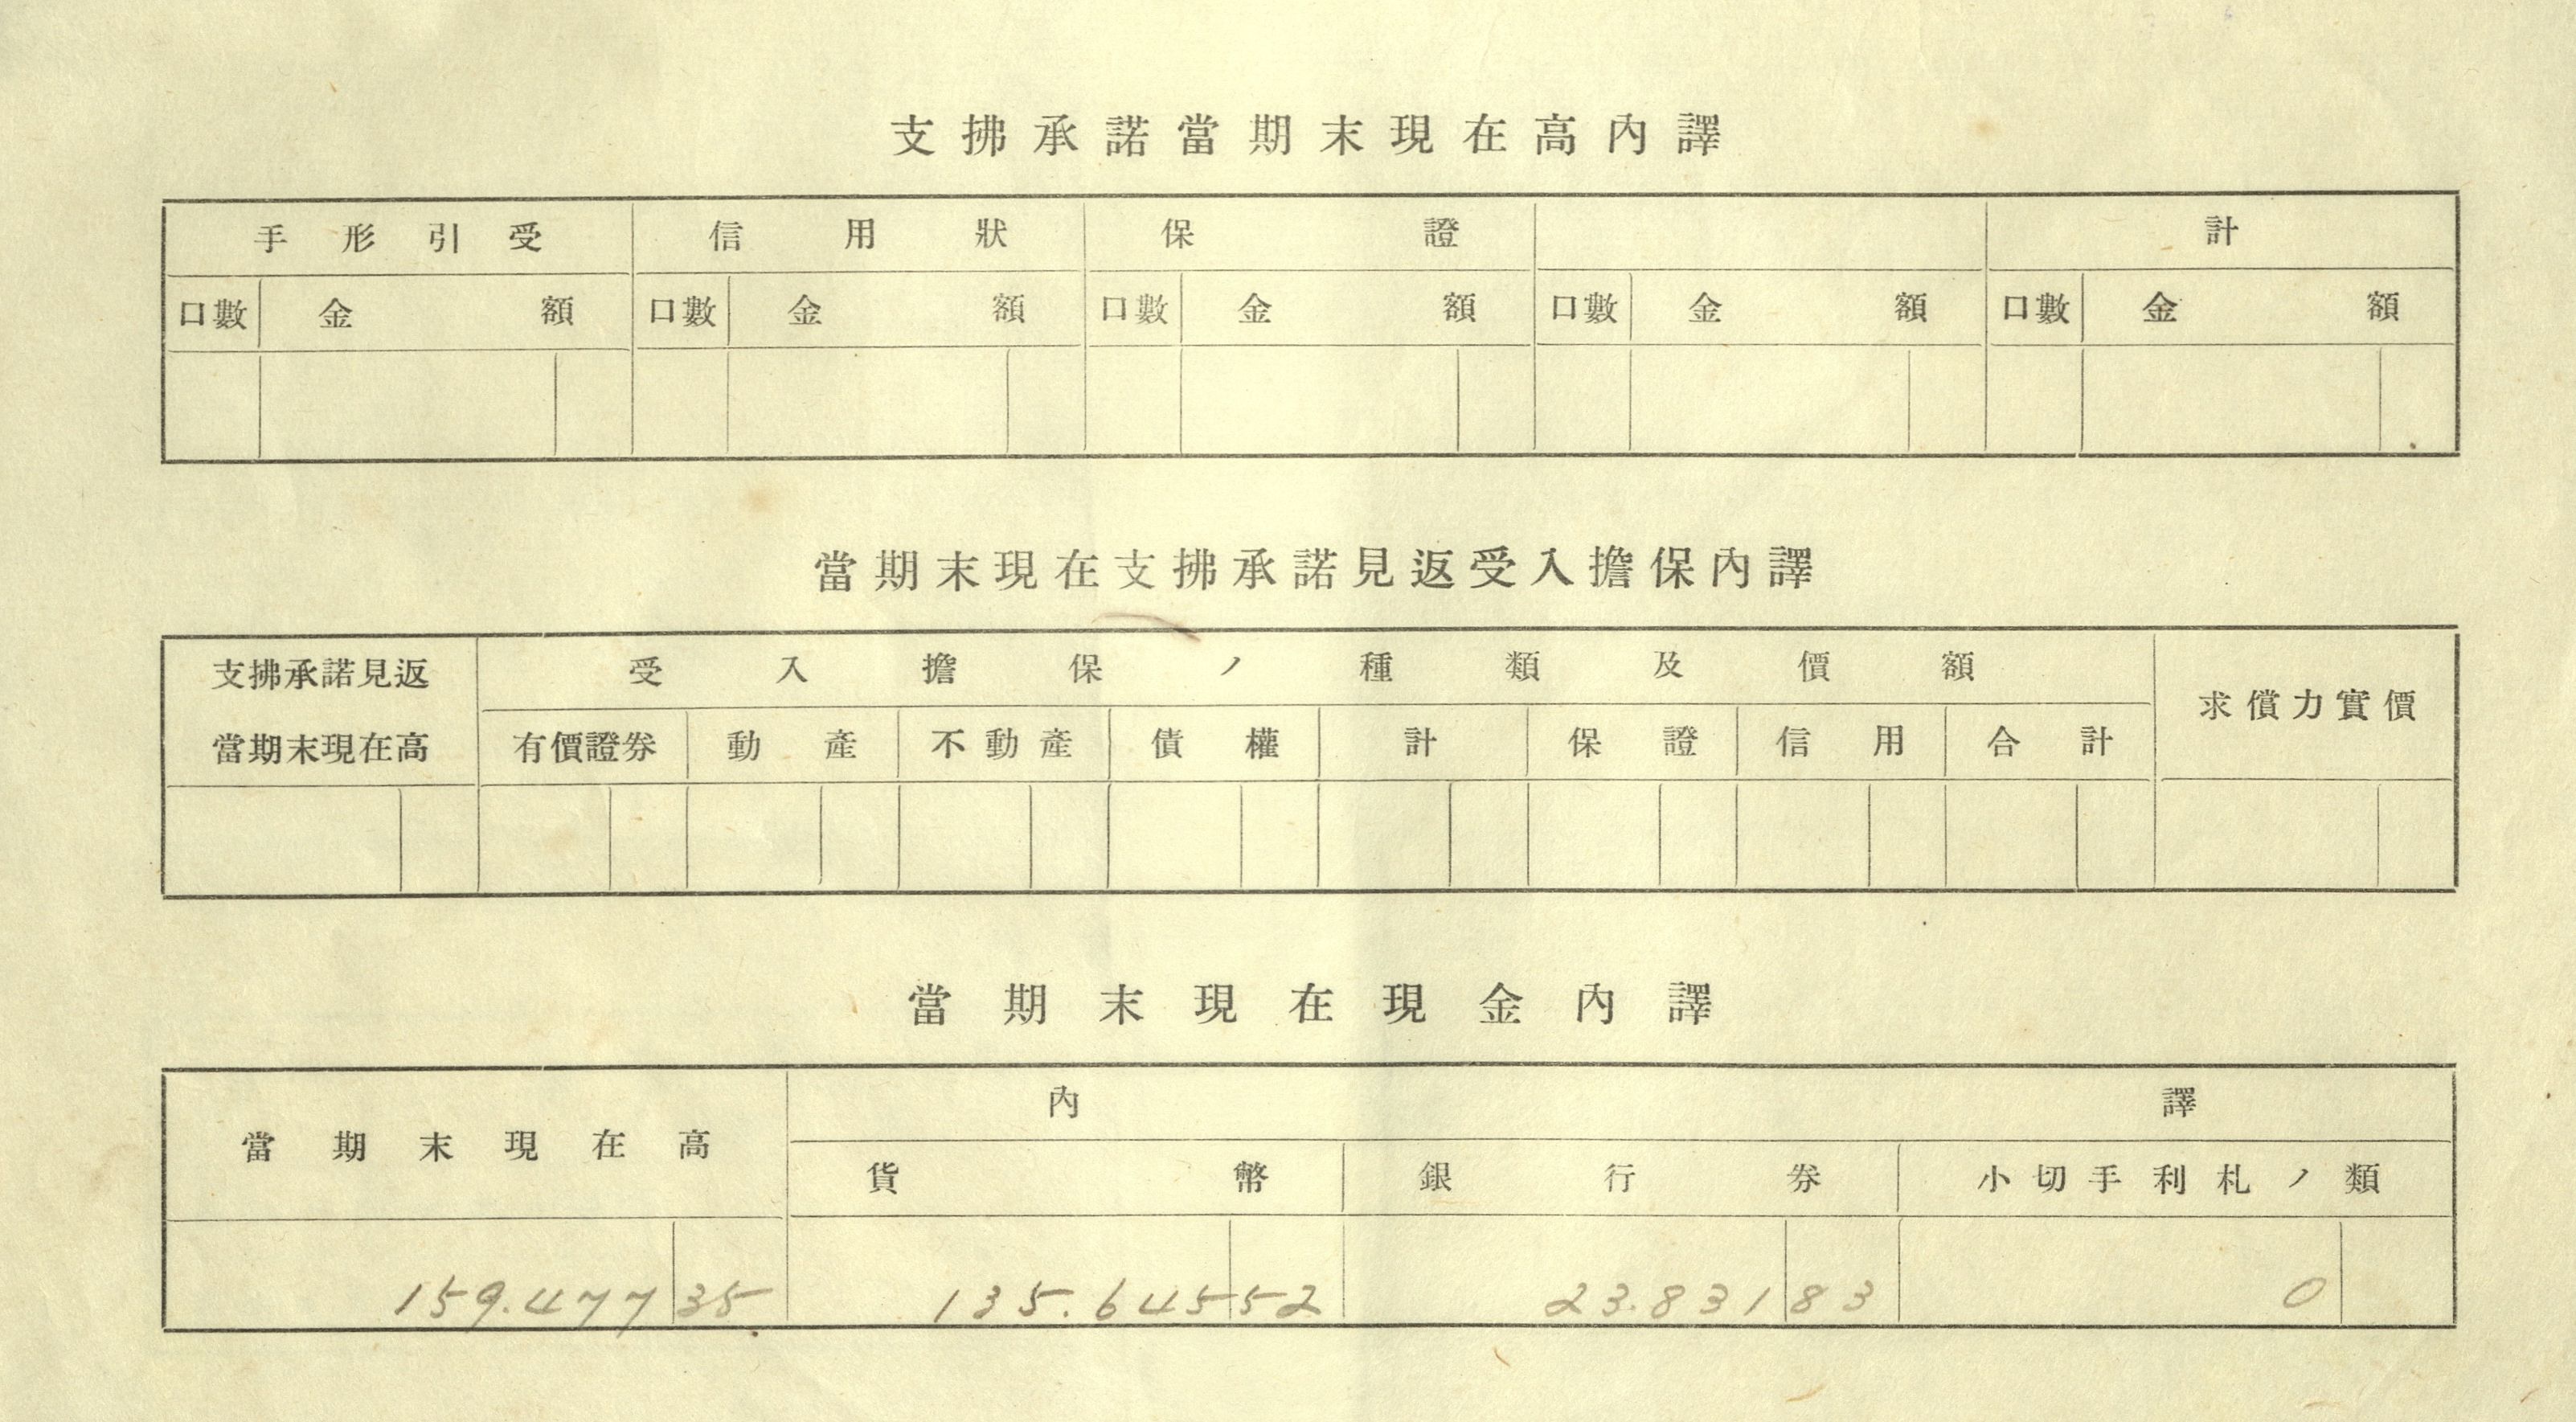 支拂承諾當期末現在高內譯
手形引受 信用狀 保證 計
口數 金額 口數 金額 口數 金額 口數 金額 口數 金額
當期末現在支拂承諾見返受入擔保內譯
支拂承諾見返 受入擔保ノ種類及價額 求償力實價
當期末現在高 有價證券 動產 不動產 債權 計 保證 信用 合計
當期末現在現金內譯
當期末現在高 內譯
貨幣 銀行券 小切手利札ノ類
159.477 35 135.645 52 23.831 83 0